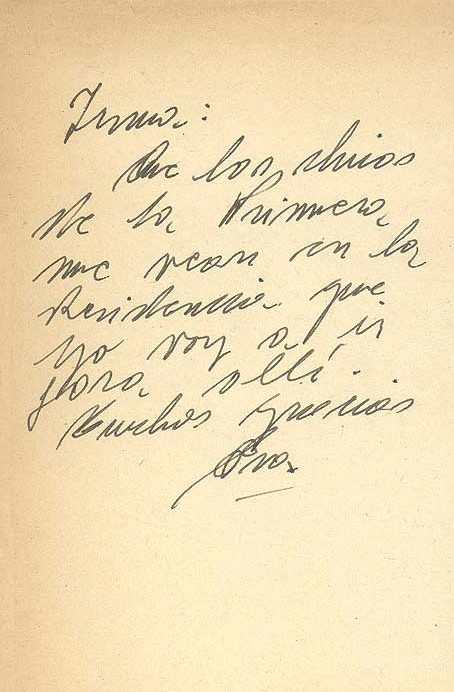 Irma:
Que los chicos
de la Primera
me vean en la
Residencia que
yo voy a ir
para allí.
Muchas gracias
Eva